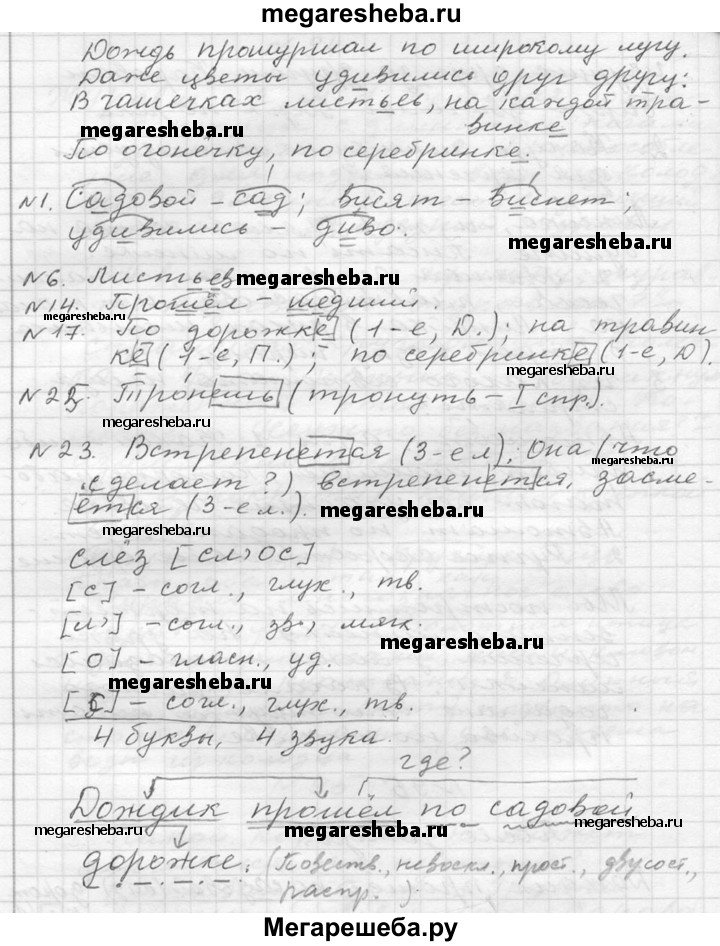 megaresheba.ru
Дождь прошуршал по широкому лугу.
Даже цветы удивились друг другу:
В чашечках листьев, на каждой тра-
винке
megaresheba.ru
По огонёчку, по серебринке.
megaresheba.ru
№1. Садовой – сад; висят – виснет;
удивились – диво.
megaresheba.ru
№6. Листьев
megaresheba.ru
№14. Прошёл – шедший.
megaresheba.ru
№17. По дорожке (1-е, Д.); на травин
ке (1-е, П.); по серебринке (1-е, Д).
megaresheba.ru
№22. Тронешь (тронуть – I спр.).
megaresheba.ru
№23. Встрепенется (3-е л). Она (что
megaresheba.ru
сделает?) встрепенется, засме-
ётся (3-е л.).
megaresheba.ru
megaresheba.ru
слёз [сл’ос]
[с] – согл., глух., тв.
[л’] – согл., зв., мягк.
megaresheba.ru
[о] – гласн., уд.
megaresheba.ru
[с] – согл., глух., тв.
4 буквы, 4 звука.
где?
Дождик прошёл по садовой
megaresheba.ru
megaresheba.ru
megaresheba.ru
дорожке. (Повеств., невоскл., прост., двусост.,
распр.).
Мегарешеба.ру